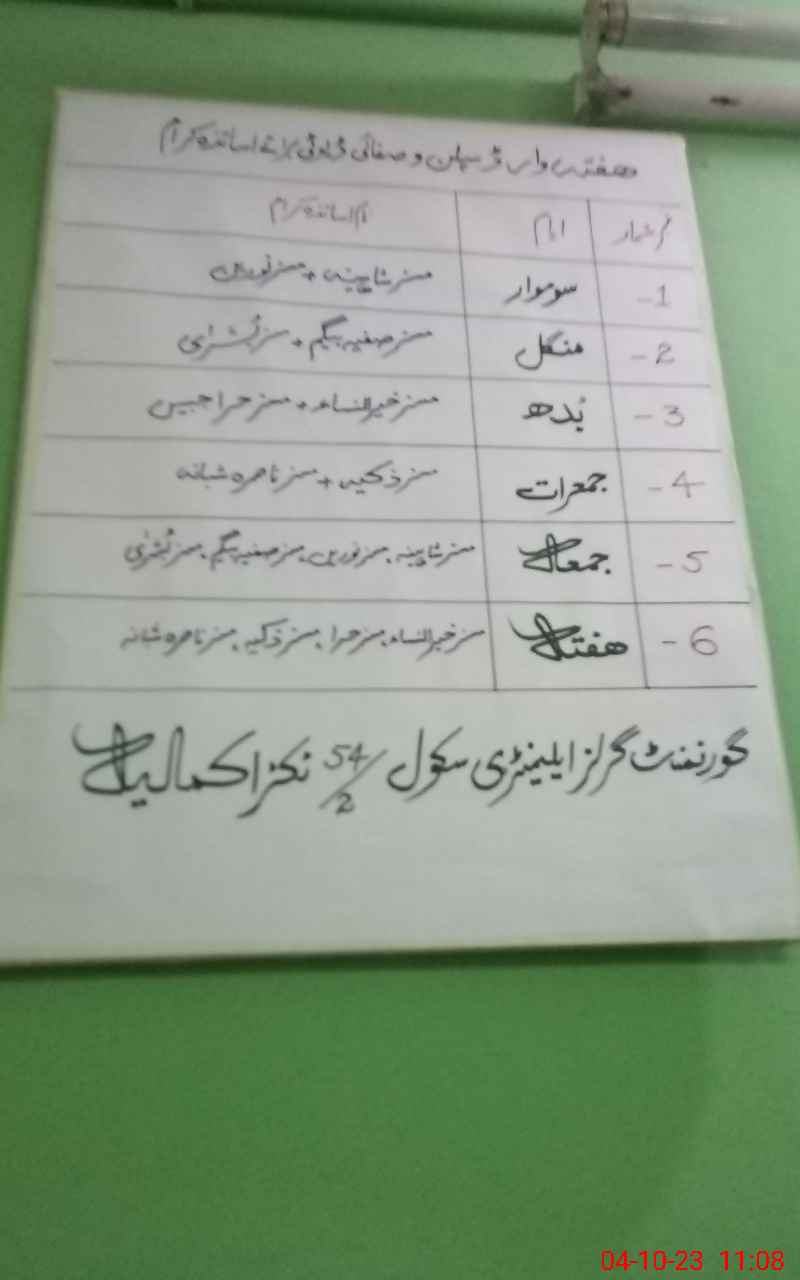 ہفتہ وار ڈسپلن و صفائی ڈیوٹی برائے اساتذہ کرام
نمبر شمار ایام نام اساتذہ کرام
1- سوموار مسز شاہینہ + مسز نورین
2- منگل مسز صفیہ بیگم + مسز بُشرٰی
3- بُدھ مسز خیرالنساء + مسز حرا جبیں
4- جمعرات مسز ذکیہ + مسز ناصرہ شبانہ
5- جمعہ مسز شاہینہ، مسز نورین، مسز صفیہ بیگم، مسز بُشرٰی
6- ہفتہ مسز خیرالنساء، مسز حرا، مسز ذکیہ، مسز ناصرہ شبانہ
گورنمنٹ گرلز ایلیمنٹری سکول 54/2 ٹکڑا کمالیہ
04-10-23 11:08